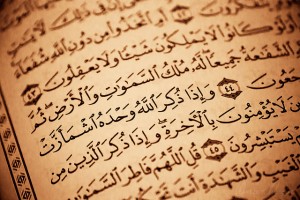 ٱتَّخَذُوا۟ مِن دُونِ ٱللَّهِ شُفَعَآءَ
كَانُوا۟ لَا يَمْلِكُونَ شَيْـًٔا وَلَا يَعْقِلُونَ ٤٣
ٱلشَّفَـٰعَةُ جَمِيعًا لَّهُۥ مُلْكُ ٱلسَّمَـٰوَٰتِ وَٱلْأَرْضِ ثُمَّ
جَعُونَ ٤٤ وَإِذَا ذُكِرَ ٱللَّهُ وَحْدَهُ ٱشْمَأَزَّتْ
نَ لَا يُؤْمِنُونَ بِٱلْـَٔاخِرَةِ وَإِذَا ذُكِرَ ٱلَّذِينَ مِن
يَسْتَبْشِرُونَ ٤٥ قُلِ ٱللَّهُمَّ فَاطِرَ ٱلسَّمَـٰوَ
ٱلْغَيْبِ وَٱلشَّهَـٰدَةِ أَنتَ